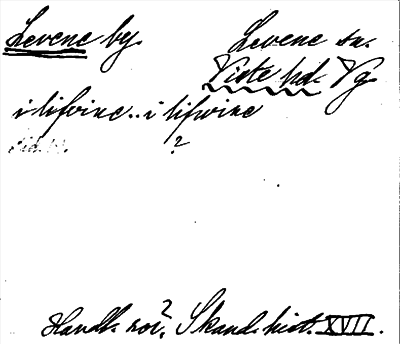 Levene by. Levene sn.
Viste hd. Vg
i lifvine.. i lifwine
?
Handl. rör. ? Skand. hist. XVII.